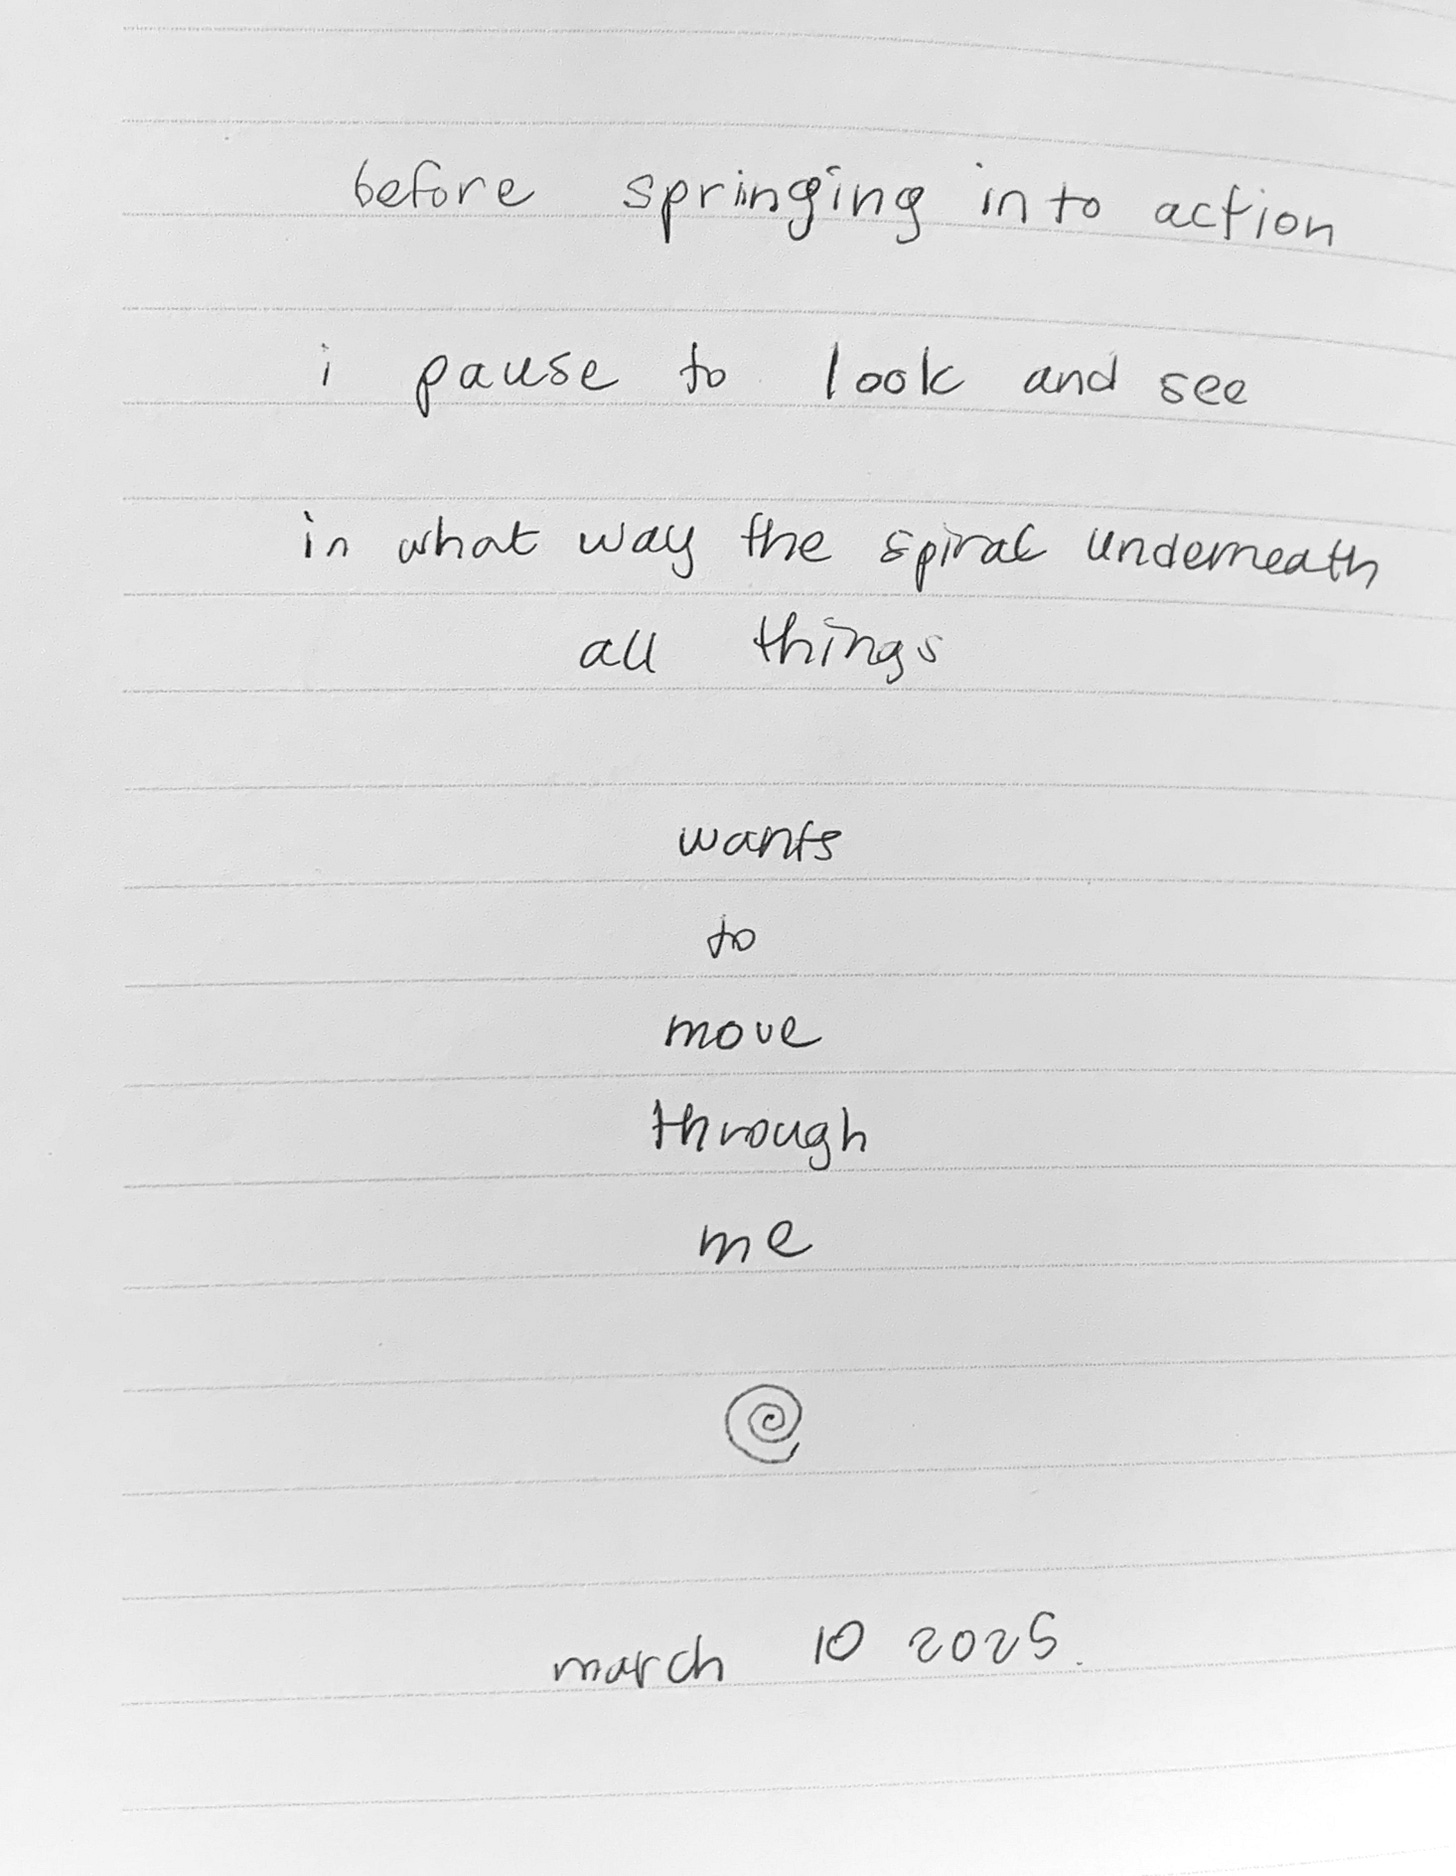 before springing into action
i pause to look and see
in what way the spiral underneath
all things
wants
to
move
through
me
march 10 2025.